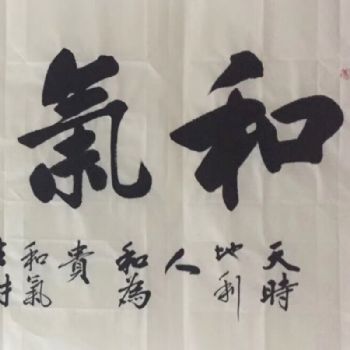 和氣
天時
地利
人
和為
貴
和氣
生財